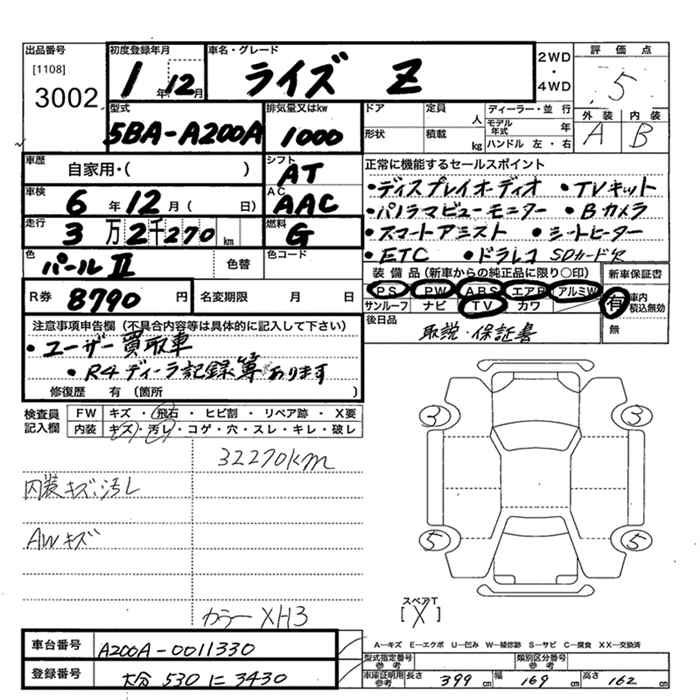 出品番号
[1108]
3002
初度登録年月
1年12月
車名・グレード
ライズ Z
2WD
・
4WD
評価点
5
外装 内装
A B
型式
5BA-A200A
排気量又はkw
1000
ドア
定員 人
形状
積載 kg
ディーラー・並行
モデル年式 年
ハンドル 左・右
車歴
自家用・( )
シフト
AT
AC
AAC
車検
6年12月( 日)
走行
3万2千270km
燃料
G
色
パールⅡ
色替
色コード
R券
8790円
名変期限 月 日
正常に機能するセールスポイント
・ディスプレイオーディオ ・TVキット
・パノラマビューモニター ・Bカメラ
・スマートアシスト ・シートヒーター
・ETC ・ドラレコ SDカード欠
装備品(新車からの純正品に限り○印)
PS PW ABS エアB アルミW
サンルーフ ナビ TV カワ
新車保証書
有 車内積込無効
無
後日品
取説・保証書
注意事項申告欄(不具合内容等は具体的に記入して下さい)
・ユーザー買取車
・R4ディーラ記録簿あります
修復歴 有(箇所 )
検査員記入欄
FW キズ・飛石・ヒビ割・リペア跡・X要
内装 キズ・汚レ・コゲ・穴・スレ・キレ・破レ
32270km
内装キズ汚レ
AWキズ
カラーXH3
3 3
5 5
スペアT
[X]
A―キズ E―エクボ U―凹み W―補修跡 S―サビ C―腐食 XX―交換済
車台番号
A200A-0011330
登録番号
大分 530 に 3430
型式指定番号 参考
類別区分番号 参考
車庫証明用 参考
長さ 399cm 幅 169cm 高さ 162cm